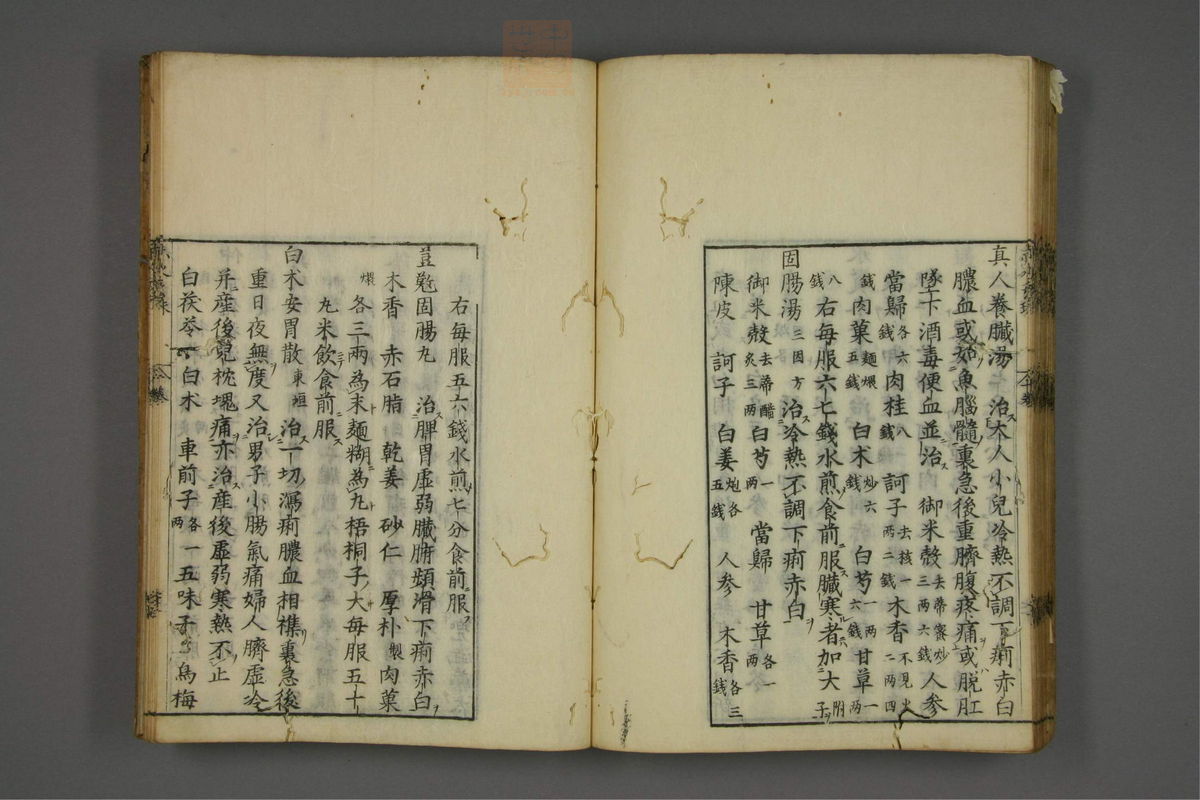 真人養臟湯 治大人小兒冷熱不調下痢赤白
膿血或如魚腦髓裏急後重臍腹疼痛或脫肛
墜下酒毒便血並治 御米殼去蒂蜜炒三两六錢人參
當歸各六錢肉桂八錢 訶子去核一两二錢木香不見火二两四
錢肉菓麵煨五錢 白朮炒六錢 白芍一两六錢甘草一两
八錢右每服六七錢水煎食前服臟寒者加大附子
固腸湯三因方 治冷熱不調下痢赤白
御米殼去蒂醋炙三两白芍一两 當歸 甘草各一两
陳皮 訶子 白姜炮各五錢 人參 木香各三錢
右每服五六錢水煎七分食前服
荳蔲固腸丸 治脾胃虛弱臟腑頻滑下痢赤白
木香 赤石脂 乾姜 砂仁 厚朴製肉菓
煨各三两為末麵糊為丸梧桐子大每服五十
丸米飲食前服
白朮安胃散東垣 治一切瀉痢膿血相襍裏急後
重日夜無度又治男子小腸氣痛婦人臍虛冷
并産後兒枕塊痛亦治産後虛弱寒熱不止
白茯苓 白朮 車前子各一两五味子 烏梅